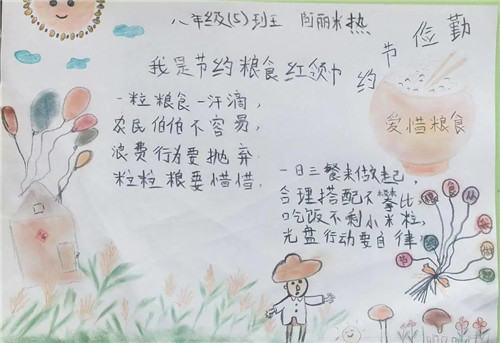 八年级(5)班 闫丽米热
勤俭节约
我是节约粮食红领巾
爱惜粮食
一粒粮食一汗滴，
农民伯伯不容易，
浪费行为要抛弃
粒粒粮要惜惜.
一日三餐来做起，
合理搭配不攀比，
吃饭不剩小米粒，
光盘行动要自律，